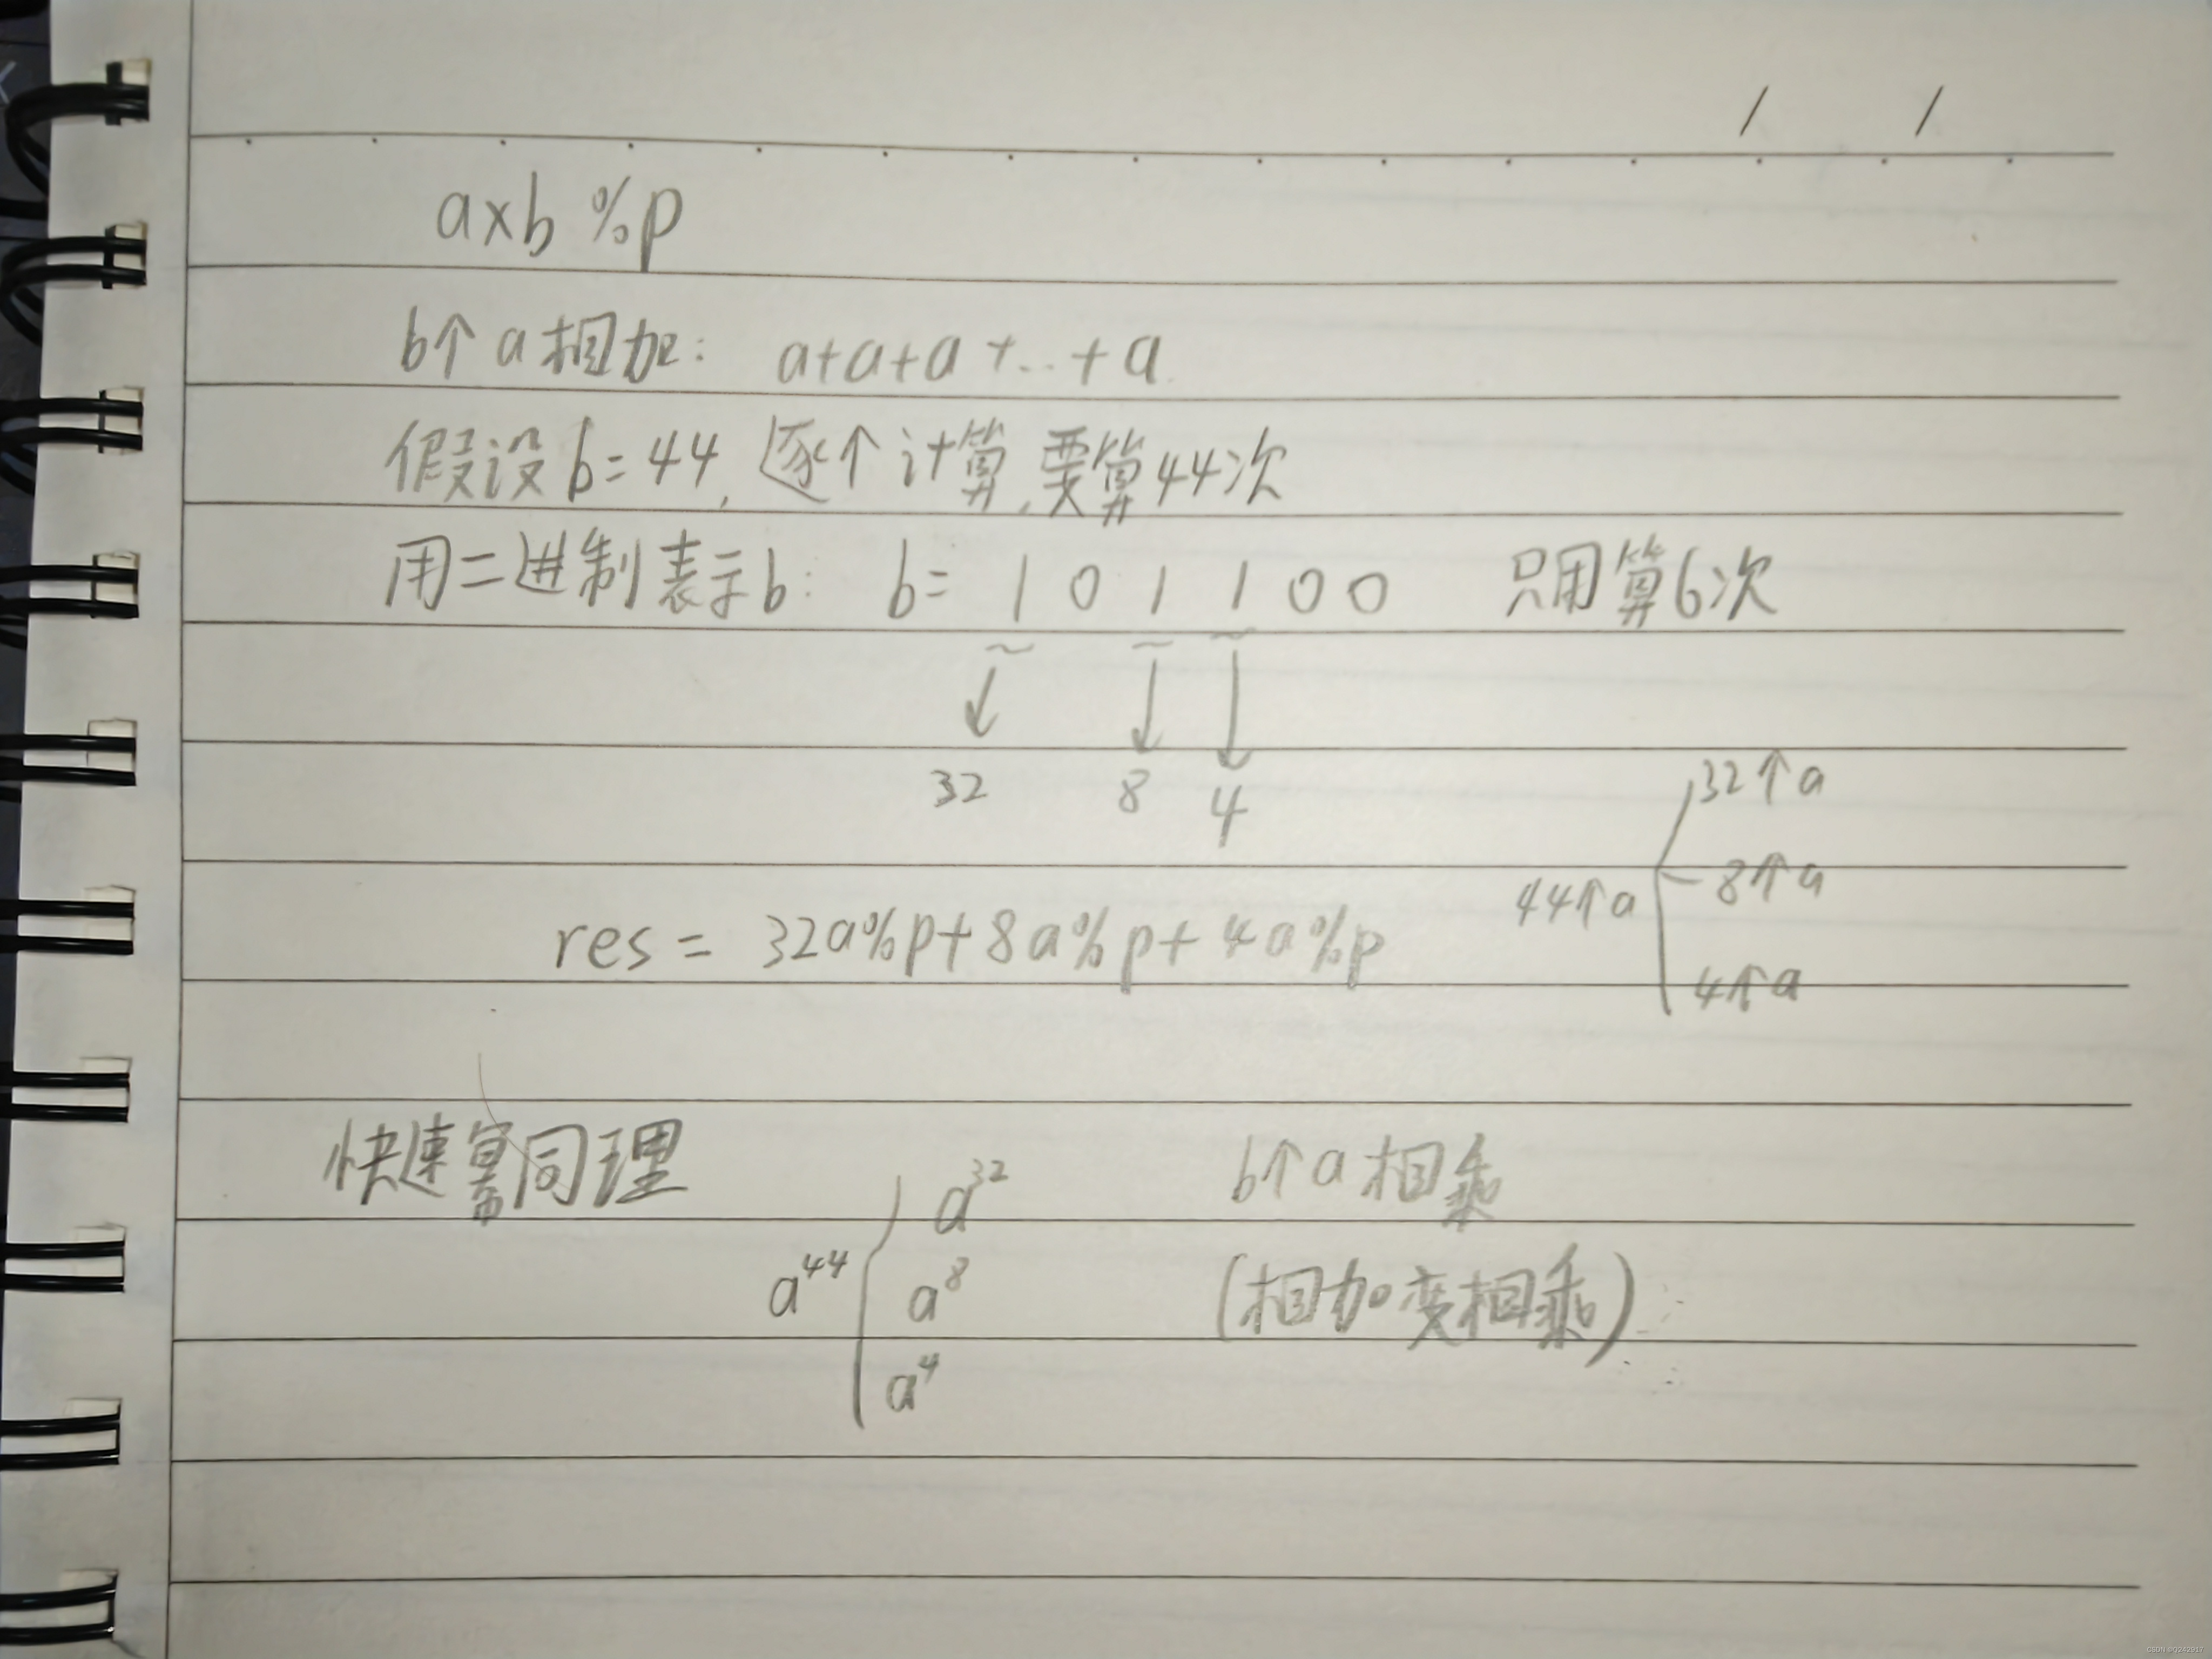 / /
a×b %p
b个a相加: a+a+a+...+a
假设b=44,逐个计算,要算44次
用二进制表示b: b= 1 0 1 1 0 0 只用算6次
32 8 4
32个a
44个a 8个a
res = 32a%p+8a%p+4a%p
4个a
快速幂同理
a^32 b个a相乘
a^44 a^8 (相加变相乘)
a^4